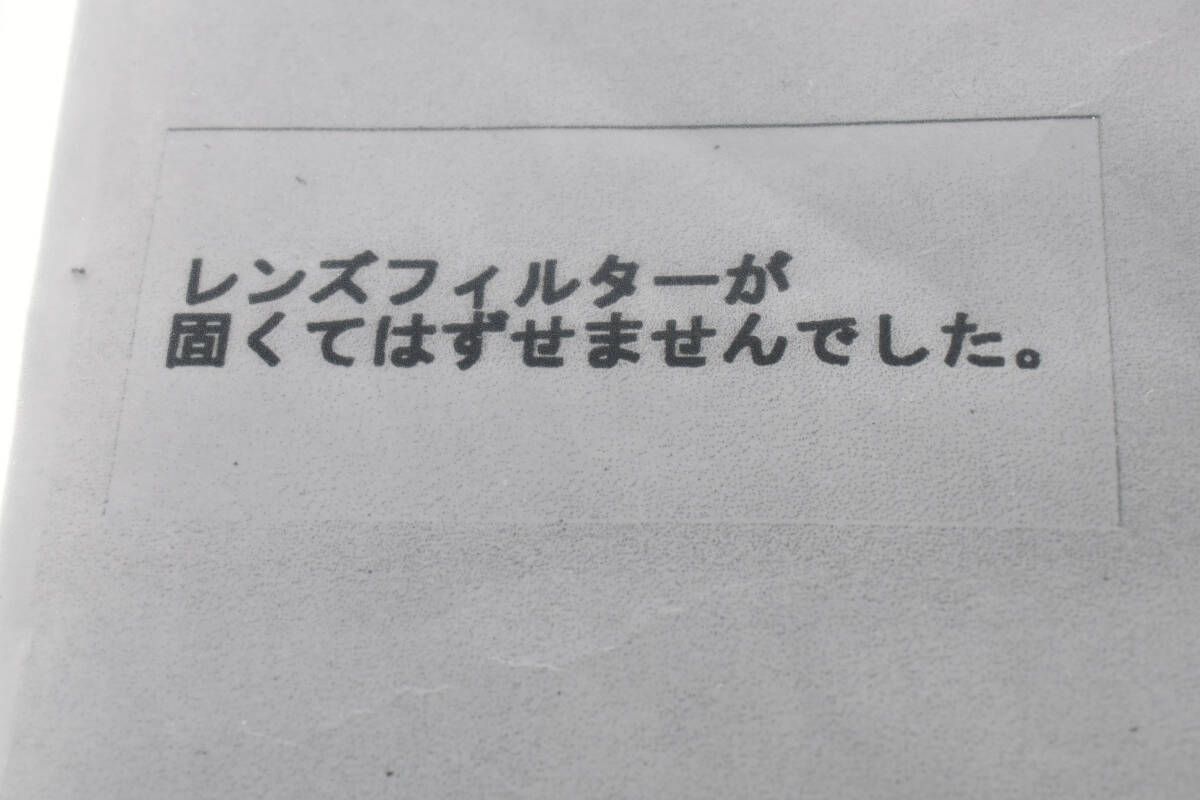 レンズフィルターが
固くてはずせませんでした。